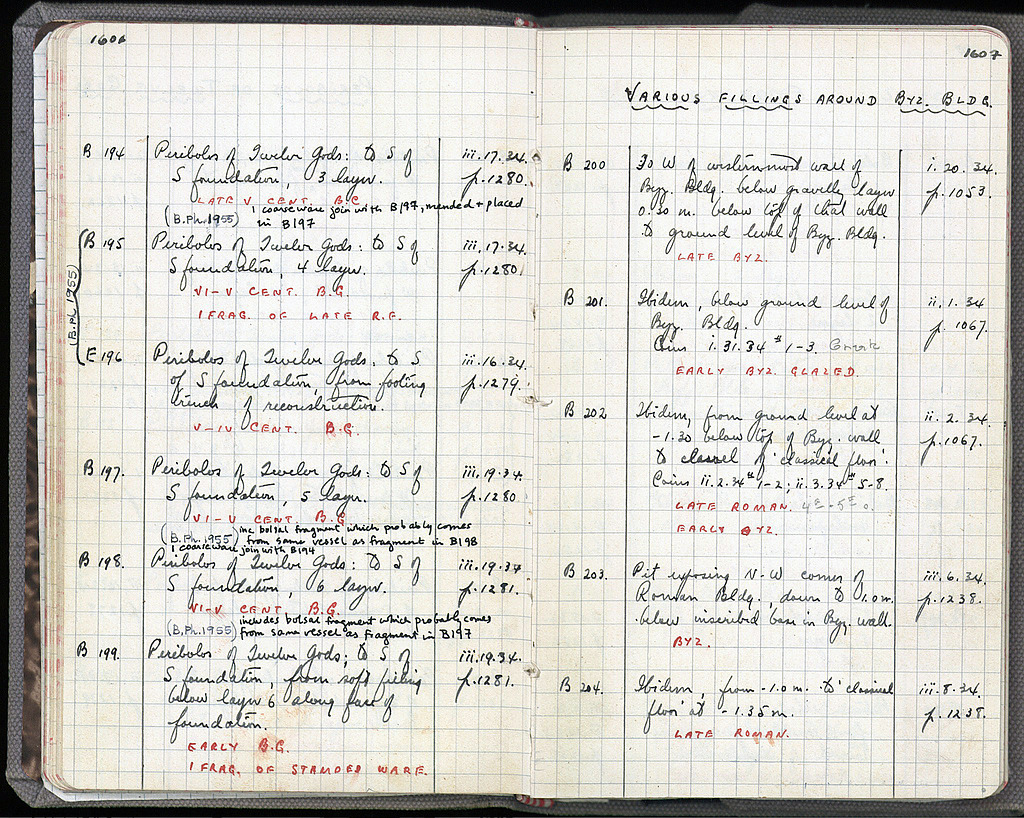 1606
B 194 Peribolos of Twelve Gods: to S of iii.17.34.
S foundation, 3 layer. p.1280.
LATE V CENT. B.G.
(B.Ph.1955) 1 coarseware join with B197, mended + placed
in B197
(B.Ph.1955)
B 195 Peribolos of Twelve Gods: to S of iii.17.34
S foundation, 4 layer. p.1280.
VI-V CENT. B.G.
1 FRAG. OF LATE R.F.
E 196 Peribolos of Twelve Gods, to S iii.16.34.
of S foundation, from footing p.1279.
trench of reconstruction.
V-IV CENT. B.G.
B 197. Peribolos of Twelve Gods: to S of iii.19.34.
S foundation, 5 layer. p.1280
VI-V CENT. B.G
(B.Ph.1955) inc bolsal fragment which probably comes
from same vessel as fragment in B198
1 coarseware join with B194
B 198. Peribolos of Twelve Gods: to S of iii.19.34
S foundation, 6 layer. p.1281.
VI-V CENT. B.G.
(B.Ph.1955) includes bolsal fragment which probably comes
from same vessel as fragment in B197
B 199. Peribolos of Twelve Gods; to S of iii.19.34.
S foundation, from soft filling p.1281.
below layer 6 along face of
foundation.
EARLY B.G.
1 FRAG. OF STAMPED WARE.
1607
VARIOUS FILLINGS AROUND BYZ. BLDG.
B 200 To W of westernmost wall of i.20.34.
Byz. Bldg. below gravelly layer p.1053.
0.30 m. below top of that wall
to ground level of Byz. Bldg.
LATE BYZ.
B 201. Ibidem, below ground level of ii.1.34
Byz. Bldg. p.1067.
Coins 1.31.34 # 1-3. Greek
EARLY BYZ. GLAZED.
B 202 Ibidem, from ground level at ii.2.34.
-1.30 below top of Byz. wall p.1067.
to level of 'classical floor'.
Coins ii.2.34 # 1-2; ii.3.34 # 5-8.
LATE ROMAN. 4th-5th c.
EARLY BYZ.
B 203. Pit exposing N-W corner of iii.6.34.
Roman Bldg., down to 1.0 m. p.1238.
below inscribed base in Byz. wall.
BYZ.
B 204. Ibidem, from -1.0 m. to 'classical iii.8.34.
floor' at -1.35 m. p.1238.
LATE ROMAN.